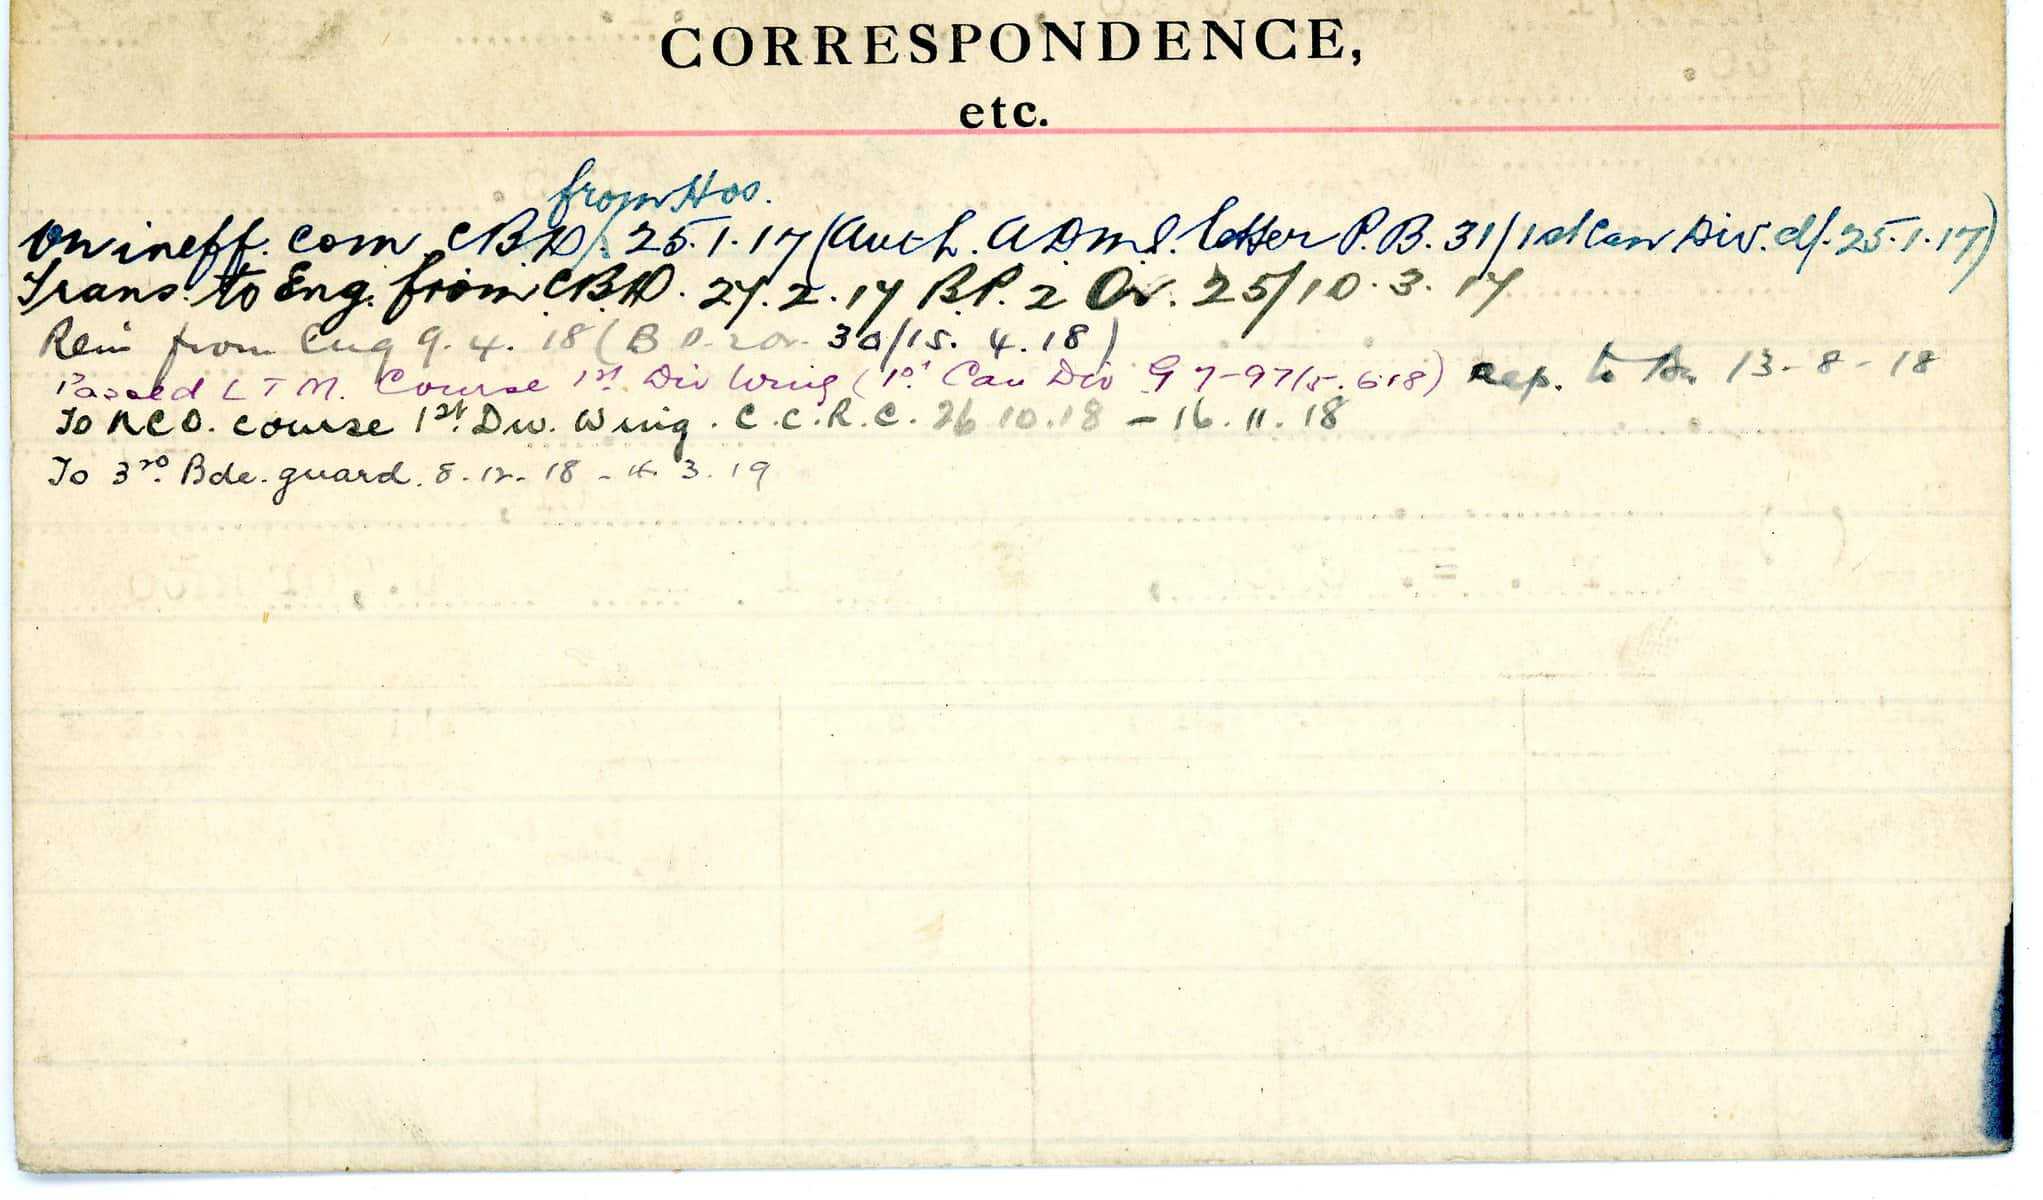 CORRESPONDENCE,
etc.
from Hos.
On ineff. Com CBD 25.1.17 (Auth. A.D.M.S. letter P.B. 31/1st Can Div. d/. 25.1.17)
Trans. to Eng. from C.B.D. 27.2.17 B.P. 2 Or. 25/10.3.17
Rein from Eng 9.4.18 (B 30/15.4.18)
Passed L T M. Course 1st Div Wing (1st Can Div G 7-97/5.6.18) rep. to Bn 13-8-18
To NCO. course 1st Div. Wing. C.C.R.C. 26 10.18 - 16.11.18
To 3rd Bde. guard. 8.12.18 - 3.19